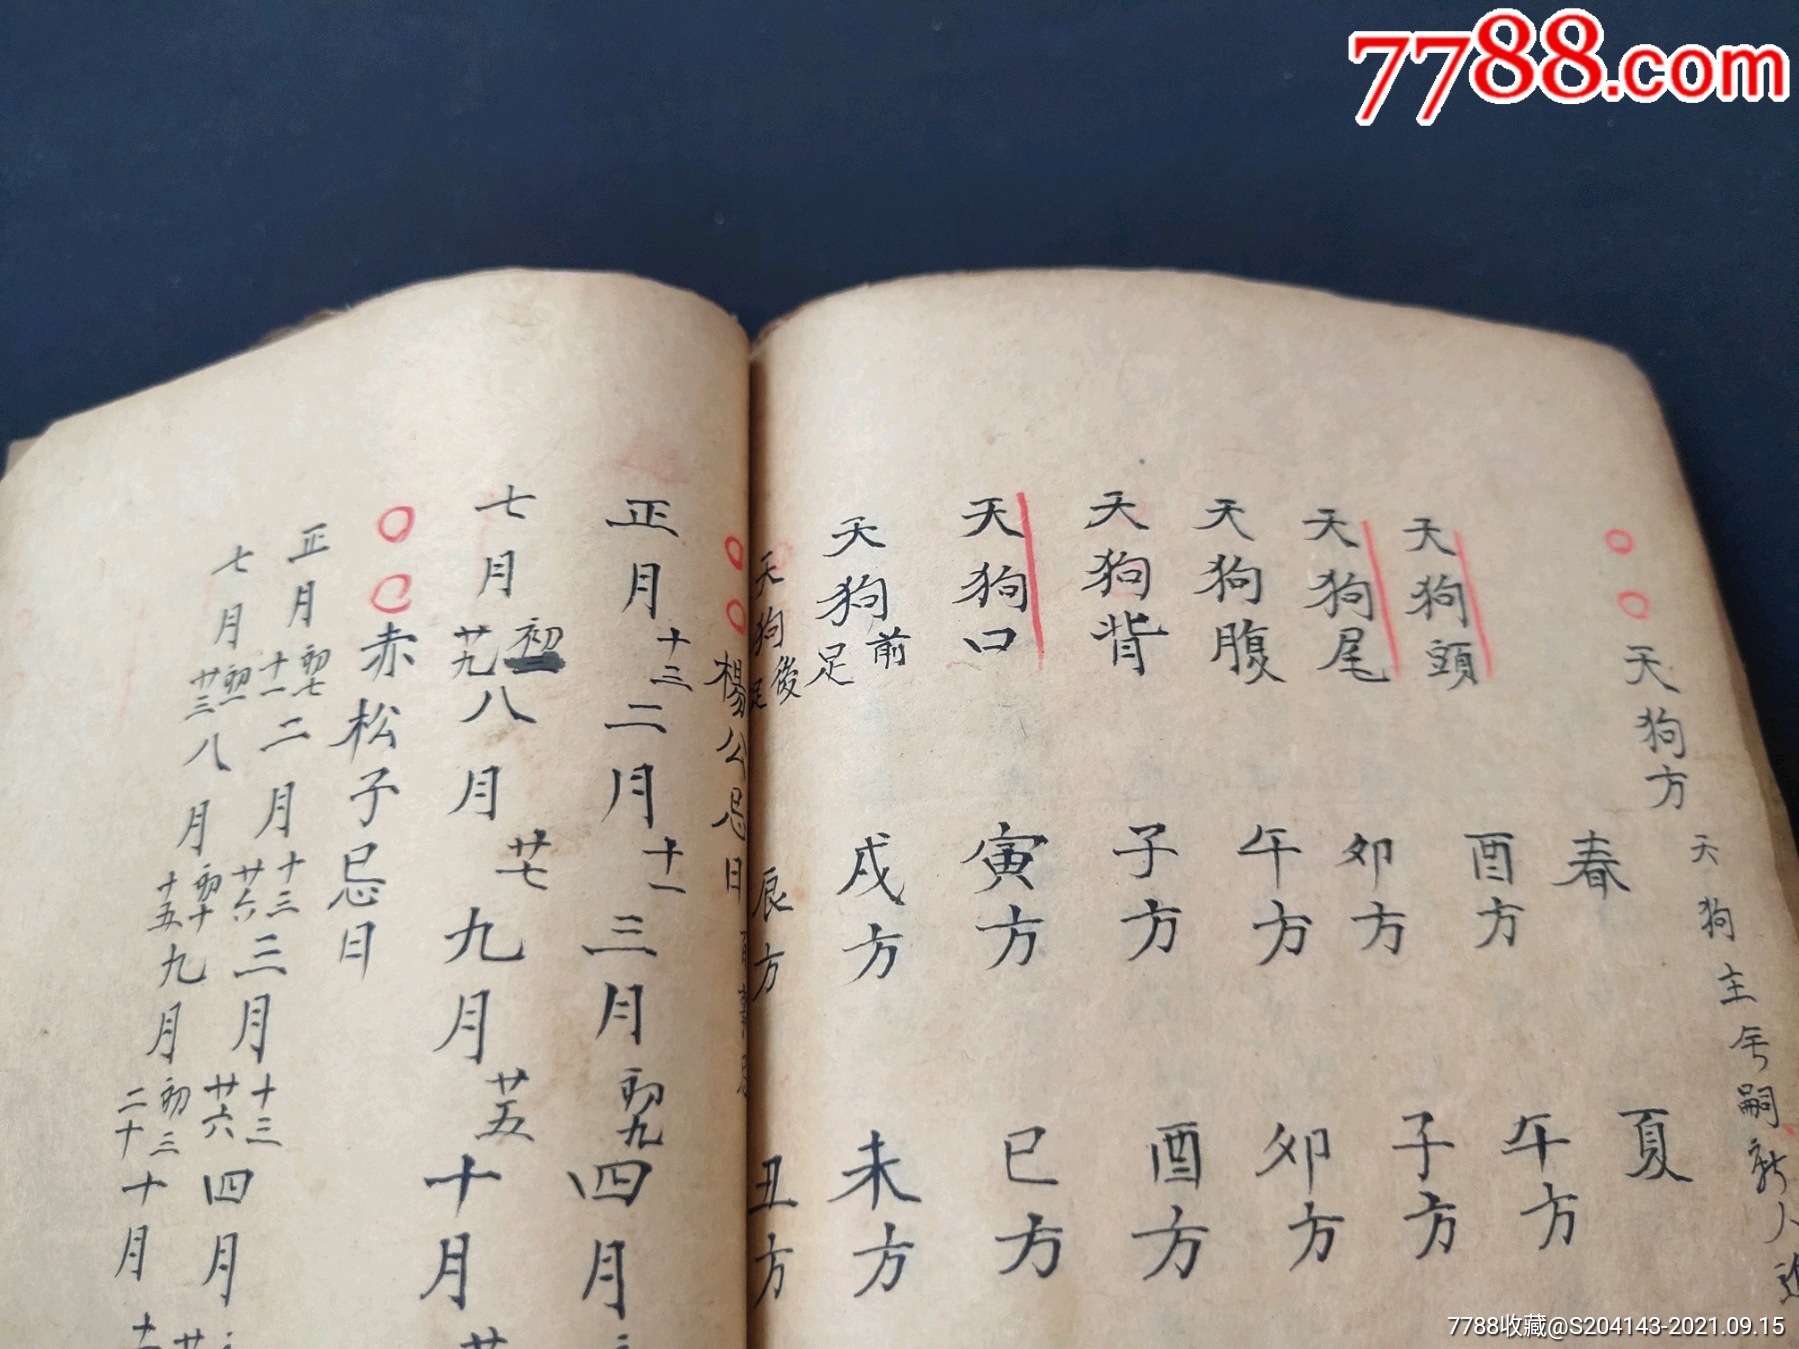 7788.com
○○天狗方 天狗主乏嗣新人
春 夏
天狗頭 酉方 午方
天狗尾 卯方 子方
天狗腹 午方 卯方
天狗背 子方 酉方
天狗口 寅方 巳方
天狗前足 戌方 未方
天狗後足 辰方 丑方
○○楊公忌日
正月十三 二月十一 三月初九 四月
七月初一廿九 八月廿七 九月廿五 十月
○○赤松子忌日
正月初七十一 二月十三廿六 三月十三廿六 四月
七月初一廿三 八月初十十五 九月初三二十 十月
7788收藏@S204143-2021.09.15